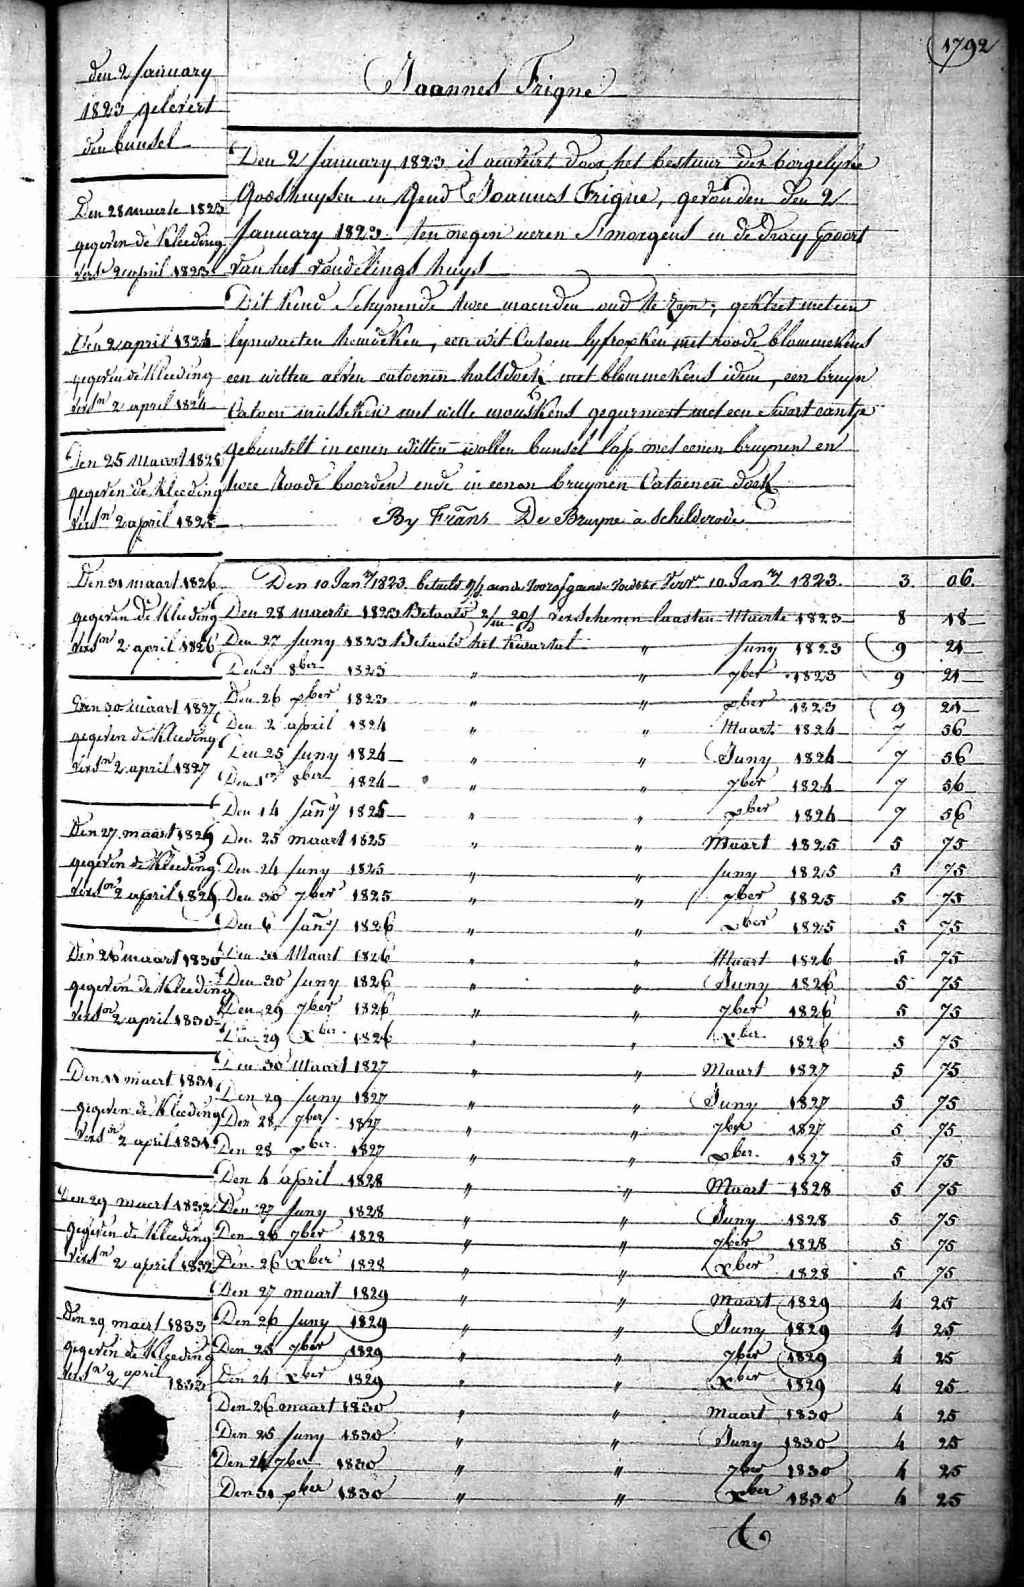 1792
Joannes Frigné
den 2 January
1823 gelevert
den bunsel
Den 28 maerte 1823
gegeven de Kleeding
vers.n 2 april 1823
Den 2 april 1824
gegeven de Kleeding
vers.n 2 april 1824
Den 25 Maart 1825
gegeven de Kleeding
vers.n 2 april 1825
Den 31 maart 1826
gegeven de Kleeding
vers.n 2 april 1826
Den 30 maart 1827
gegeven de Kleeding
vers.n 2 april 1827
Den 27 maart 1829
gegeven de Kleeding
vers.n 2 april 1829
Den 26 maart 1830
gegeven de Kleeding
vers.n 2 april 1830
Den 11 maert 1831
gegeven de Kleeding
vers.n 2 april 1831
Den 29 maert 1832
gegeven de Kleeding
vers.n 2 april 1832
Den 29 maert 1833
gegeven de Kleeding
vers.n 2 april
1833
Den 2 January 1823 is door het bestuur der borgelyke
Godshuysen in Gend Joannes Frigne, gevonden den 2
January 1823 ten negen ueren s'morgens in de Draey Poort
van het vondelings huys
Dit kind schynende twee maenden oud te zyn; gekleet met een
lynwaeten hemdeken, een wit Catoen lyfrokken met roode blommekens
een witten catoenen halsdoek met blommekens idem, een bruyn
Catoen mutseken met witte mouskens gegarneert met een Swart cantje
gebunselt in eenen witten wollen bunsel lap met eenen bruynen en
twee Roode boorden ende in eenen bruynen Catoenen doek
By Frans De Bruyne a Schelderode
Den 10 Jan.y 1823 betaelt 10 Jan.y 1823 3. 06
Den 28 maerte 1823 Betaelt verschenen laasten Maerte 1823 8 18
Den 27 Juny 1823 Betaelt het Kwartaal " Juny 1823 9 21
Den 3 8ber 1823 " " 7ber 1823 9 21
Den 26 xber 1823 " " xber 1823 9 21
Den 2 april 1824 " " Maart 1824 7 56
Den 25 Juny 1824 " " Juny 1824 7 56
Den 1er 8ber 1824 " " 7ber 1824 7 56
Den 14 Jany 1825 " " xber 1824 7 56
Den 25 maart 1825 " " Maart 1825 5 75
Den 24 Juny 1825 " " Juny 1825 5 75
Den 30 7ber 1825 " " 7ber 1825 5 75
Den 6 Jany 1826 " " xber 1825 5 75
Den 31 Maart 1826 " " Maart 1826 5 75
Den 30 Juny 1826 " " Juny 1826 5 75
Den 29 7ber 1826 " " 7ber 1826 5 75
Den 29 Xber 1826 " " Xber 1826 5 75
Den 30 Maart 1827 " " Maart 1827 5 75
Den 29 Juny 1827 " " Juny 1827 5 75
Den 28 7ber 1827 " " 7ber 1827 5 75
Den 28 xber 1827 " " xber 1827 5 75
Den 4 april 1828 " " Maart 1828 5 75
Den 27 Juny 1828 " " Juny 1828 5 75
Den 26 7ber 1828 " " 7ber 1828 5 75
Den 26 Xber 1828 " " Xber 1828 5 75
Den 27 maart 1829 " " Maart 1829 4 25
Den 26 Juny 1829 " " Juny 1829 4 25
Den 25 7ber 1829 " " 7ber 1829 4 25
Den 24 Xber 1829 " " Xber 1829 4 25
Den 26 maart 1830 " " Maart 1830 4 25
Den 25 Juny 1830 " " Juny 1830 4 25
Den 24 7ber 1830 " " 7ber 1830 4 25
Den 31 xber 1830 " " Xber 1830 4 25